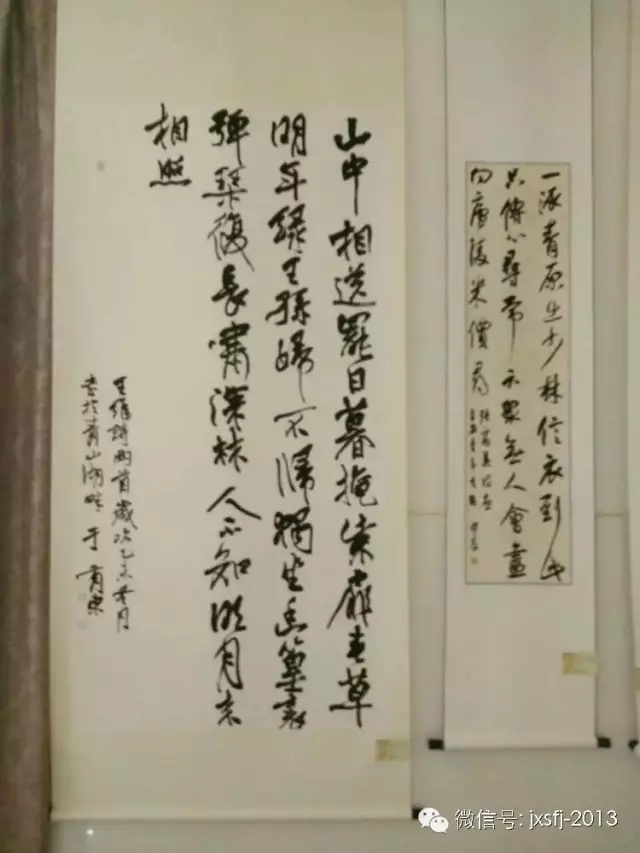 一派青原出少林信衣到此
只傳心尋常示衆無人會盡
問廬陵米價
山中相送罷日暮掩柴扉春草
明年綠王孫歸不歸獨坐幽篁裏
彈琴復長嘯深林人不知明月来
相照
王維詩兩首歲次乙未冬月
書於青山湖畔
微信号: jxsfj-2013